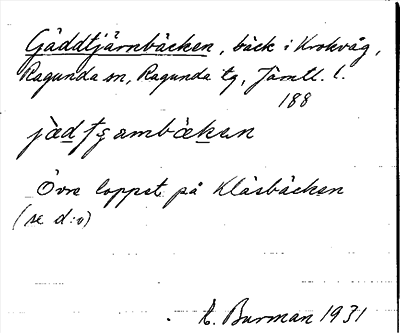 Gäddtjärnbäcken, bäck i Krokvåg,
Ragunda sn, Ragunda tg, Jämtl. l.
188
Övre loppet på Klåsbäcken
(se d:o)
E. Burman 1931